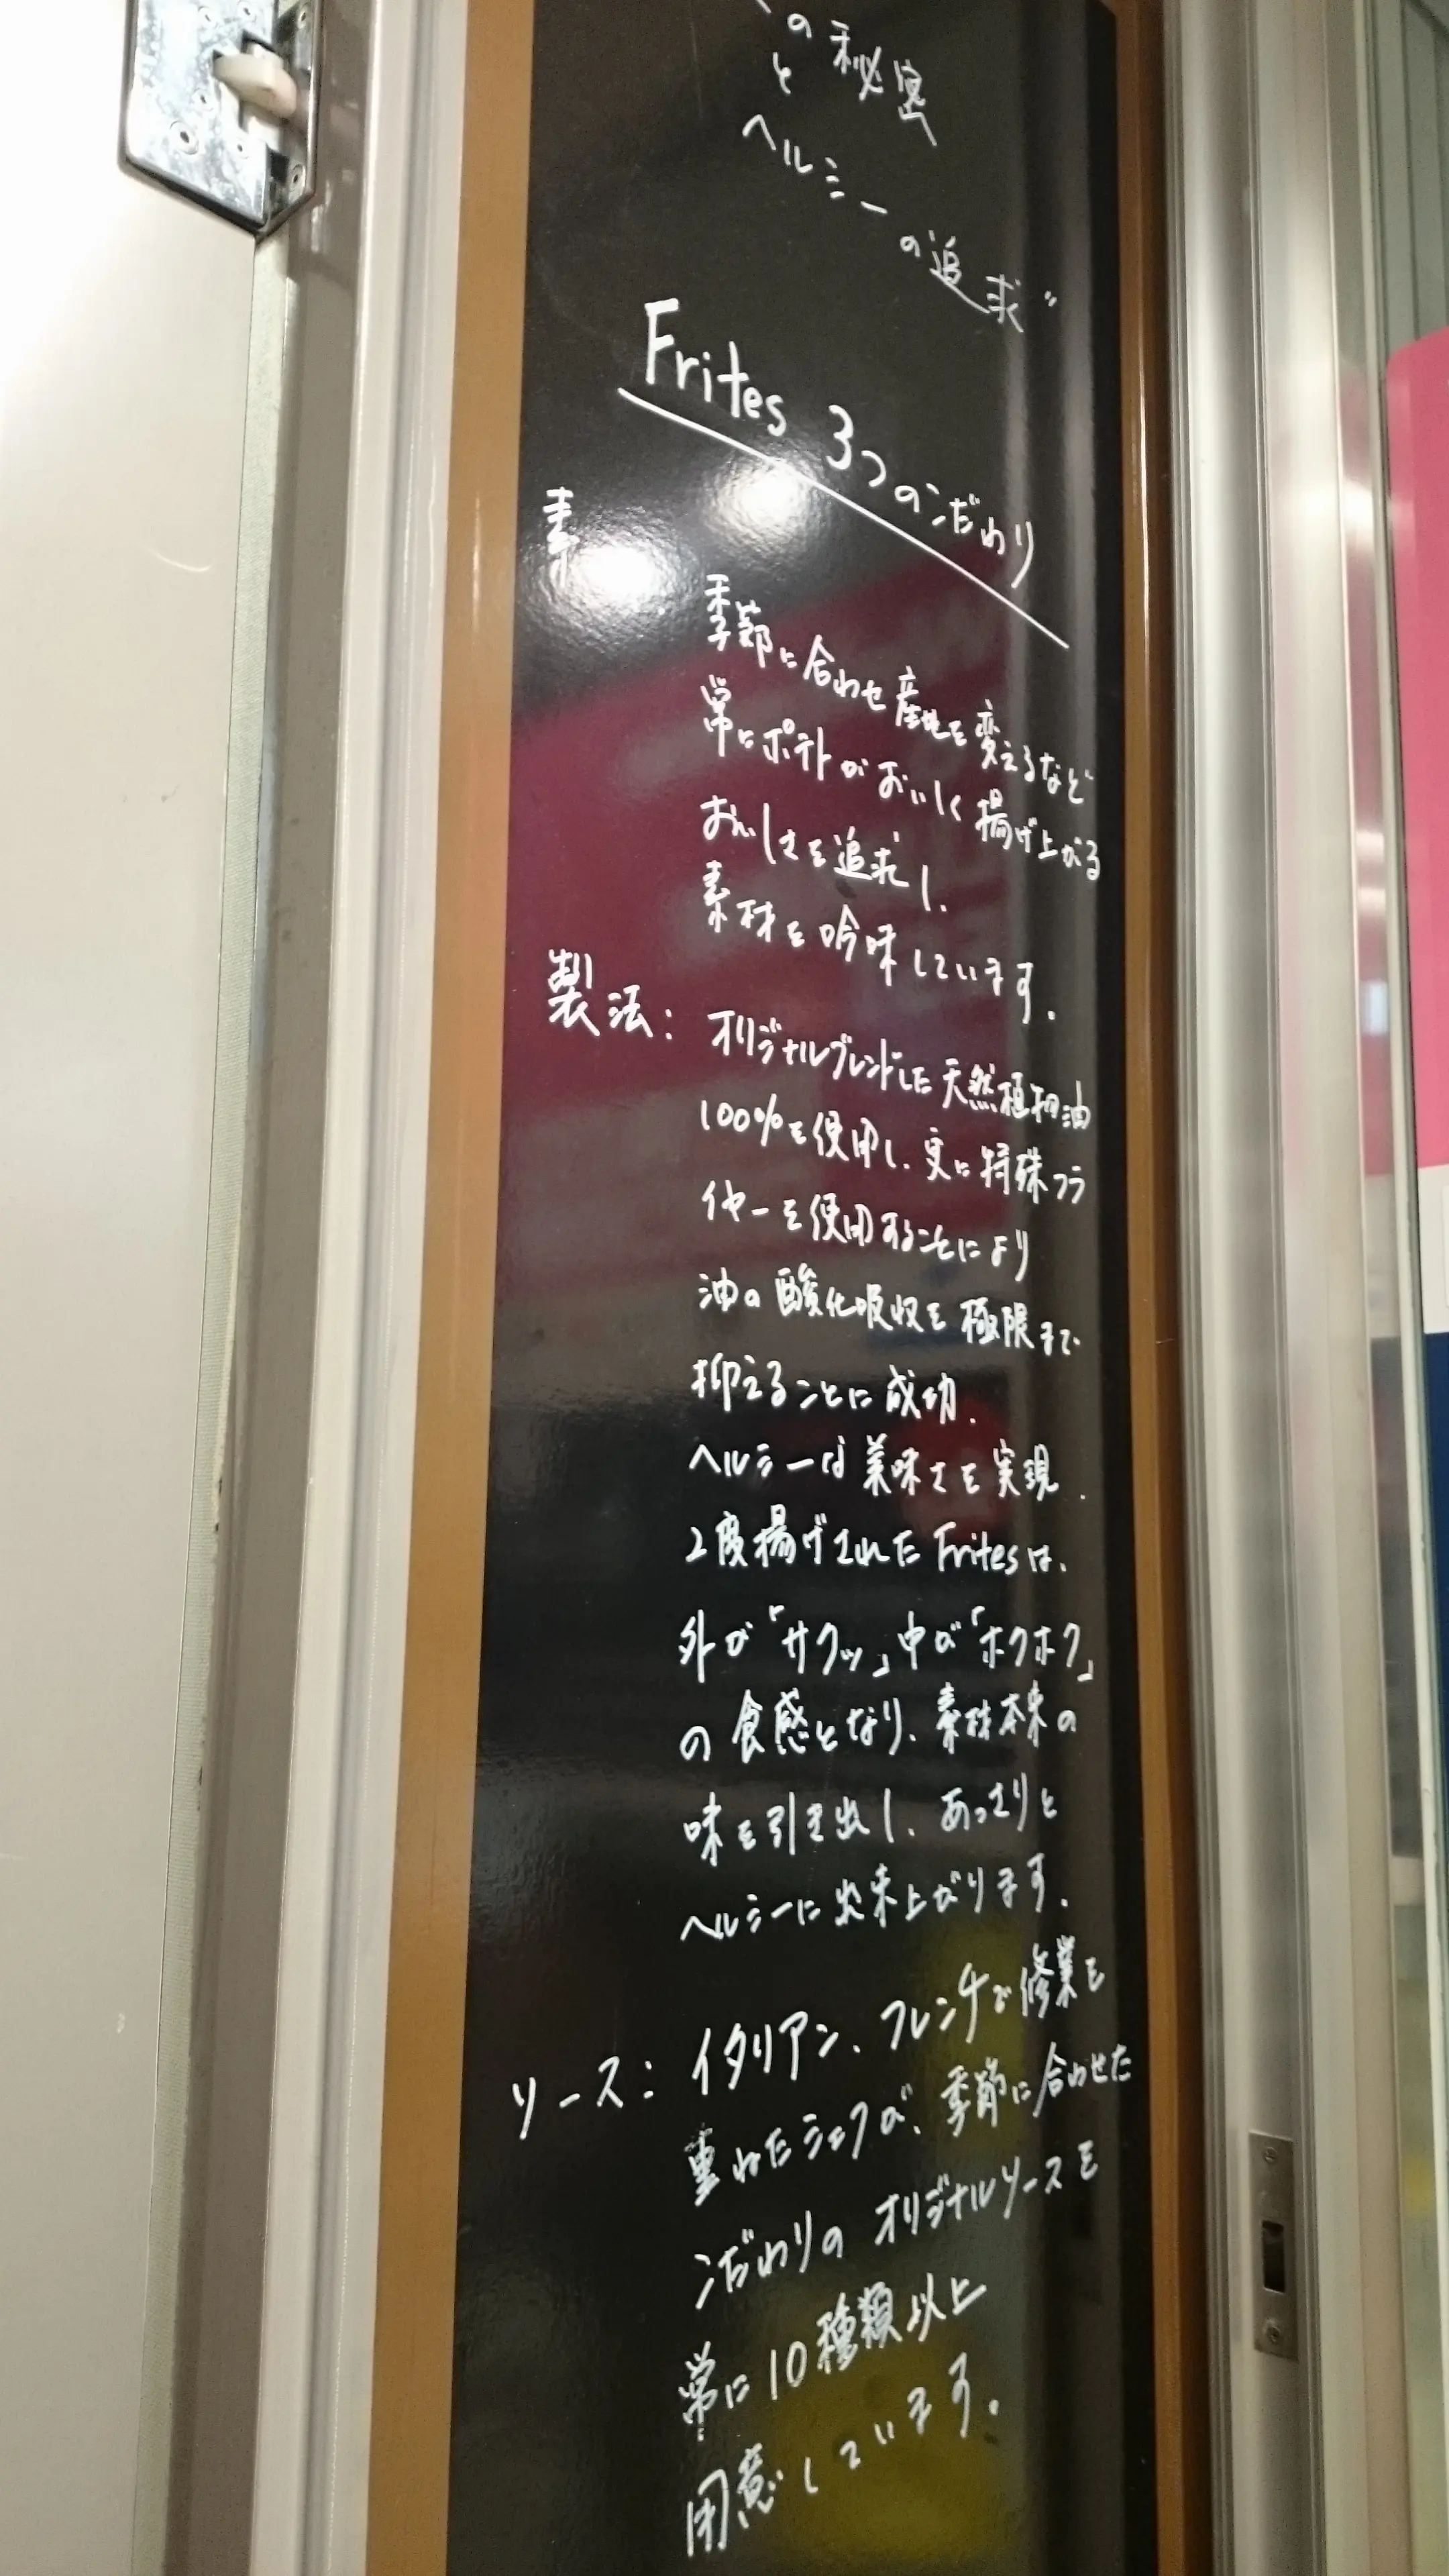 の秘密
と
ヘルシーの追求"
Frites 3つのこだわり
素
季節に合わせ産地を変えるなど
常にポテトがおいしく揚げ上がる
おいしさを追求し、
素材を吟味しています.
製法: オリジナルブレンドした天然植物油
100%を使用し、更に特殊フラ
イヤーを使用することにより
油の酸化吸収を極限まで
抑えることに成功.
ヘルシーな美味さを実現.
2度揚げされたFritesは、
外が「サクッ」中が「ホクホク」
の食感となり、素材本来の
味を引き出し、あっさりと
ヘルシーに出来上がります.
ソース: イタリアン、フレンチで修業を
重ねたシェフが、季節に合わせた
こだわりのオリジナルソースを
常に10種類以上
用意しています.